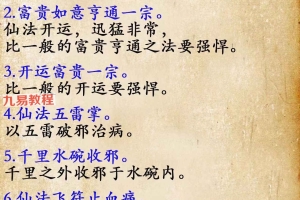 2.富贵如意亨通一宗。
仙法开运，迅猛非常，
比一般的富贵亨通之法要强悍。
3.开运富贵一宗。
比一般的开运要强悍。
九易教程
4.仙法五雷掌。
以五雷破邪治病。
5.千里水碗收邪。
千里之外收邪于水碗内。
6.仙法飞符止血病